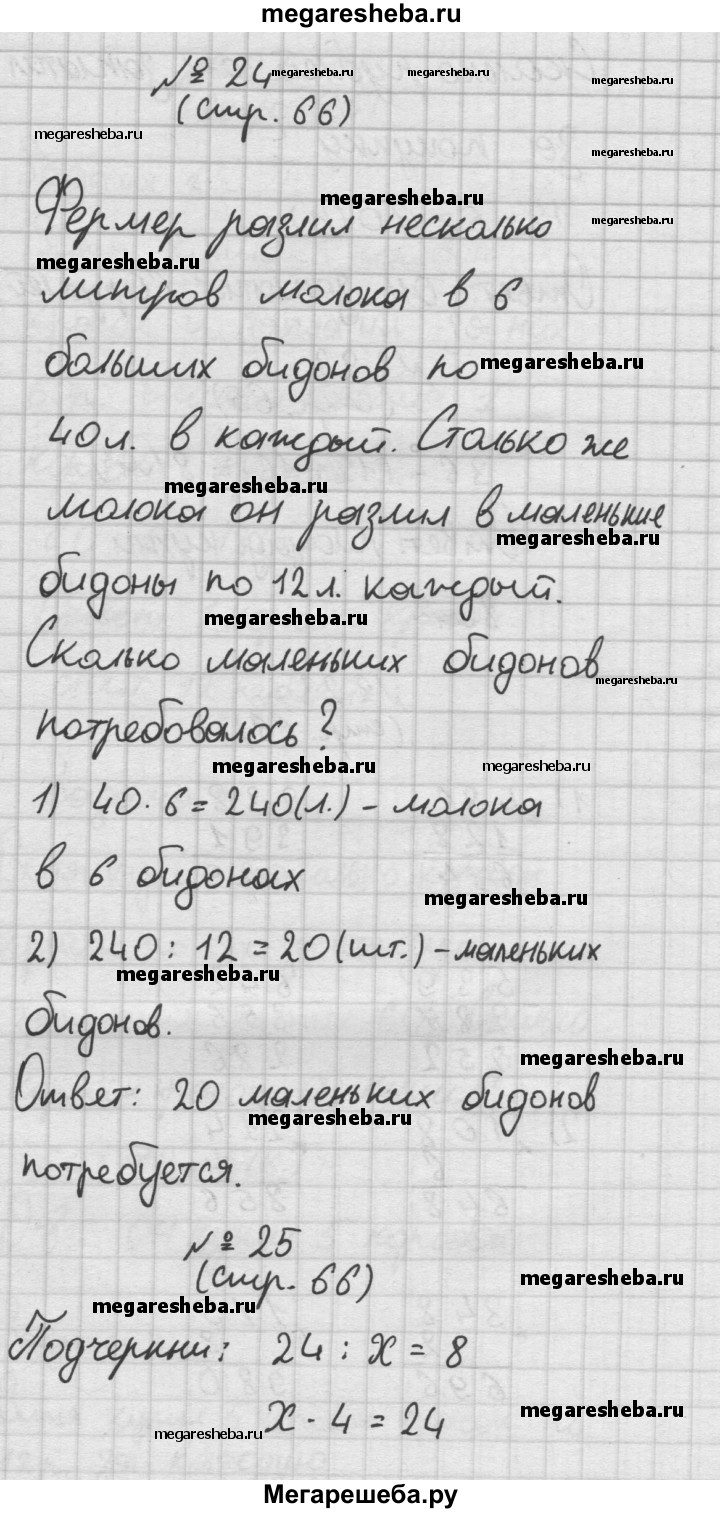 megaresheba.ru
№ 24 megaresheba.ru megaresheba.ru megaresheba.ru
(стр. 66)
megaresheba.ru megaresheba.ru
megaresheba.ru
Фермер разлил несколько megaresheba.ru
megaresheba.ru
литров молока в 6
больших бидонов по megaresheba.ru
40л. в каждый. Столько же
megaresheba.ru
молока он разлил в маленькие
megaresheba.ru
бидоны по 12 л. каждый.
megaresheba.ru
Сколько маленьких бидонов
megaresheba.ru
потребовалось?
megaresheba.ru megaresheba.ru
1) 40 · 6 = 240(л.) - молока
в 6 бидонах
megaresheba.ru
2) 240 : 12 = 20(шт.) - маленьких
megaresheba.ru
бидонов.
megaresheba.ru
Ответ: 20 маленьких бидонов
megaresheba.ru
потребуется.
№ 25
(стр. 66) megaresheba.ru
megaresheba.ru
Подчеркни: 24 : х = 8
х · 4 = 24 megaresheba.ru
megaresheba.ru
Мегарешеба.ру